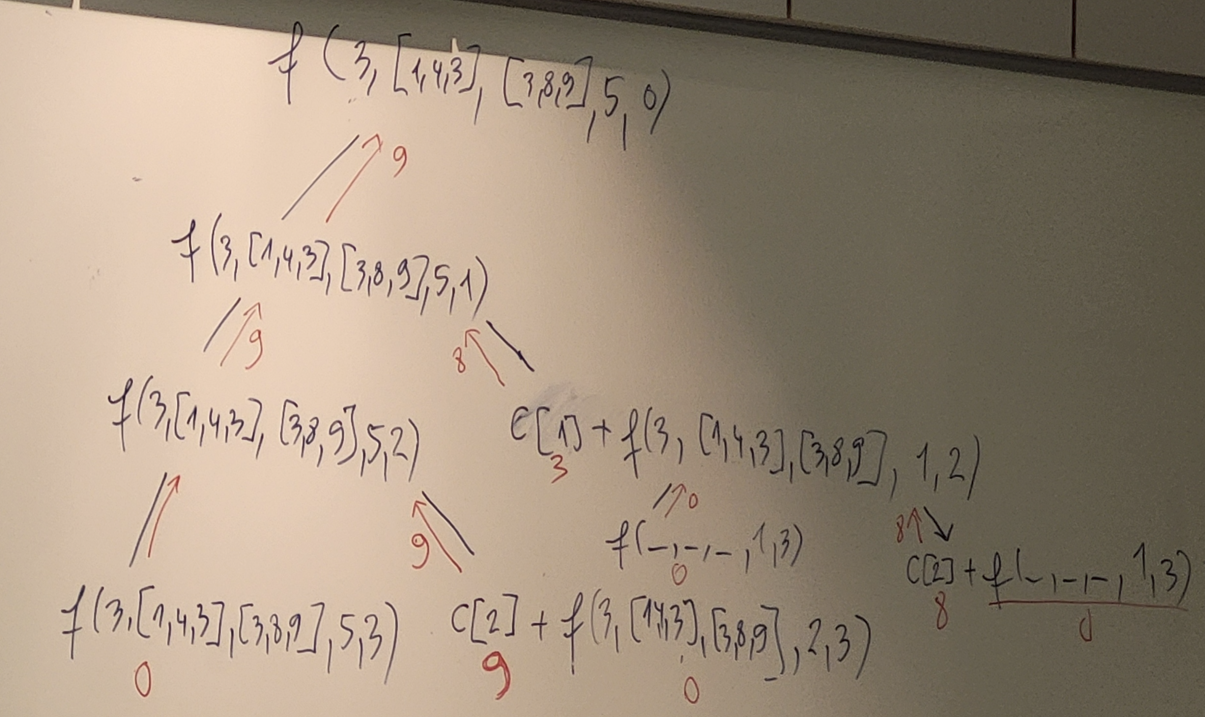 f (3, [1,4,3], [3,8,9], 5, 0)
9
f(3, [1,4,3], [3,8,9], 5, 1)
9
8
f(3, [1,4,3], [3,8,9], 5, 2)
c[1] + f(3, [1,4,3], [3,8,9], 1, 2)
3
0
9
f(-, -, -, 1, 3)
0
8
c[2] + f(-, -, -, 1, 3)
8
0
f(3, [1,4,3], [3,8,9], 5, 3)
0
c[2] + f(3, [1,4,3], [3,8,9], 2, 3)
9
0